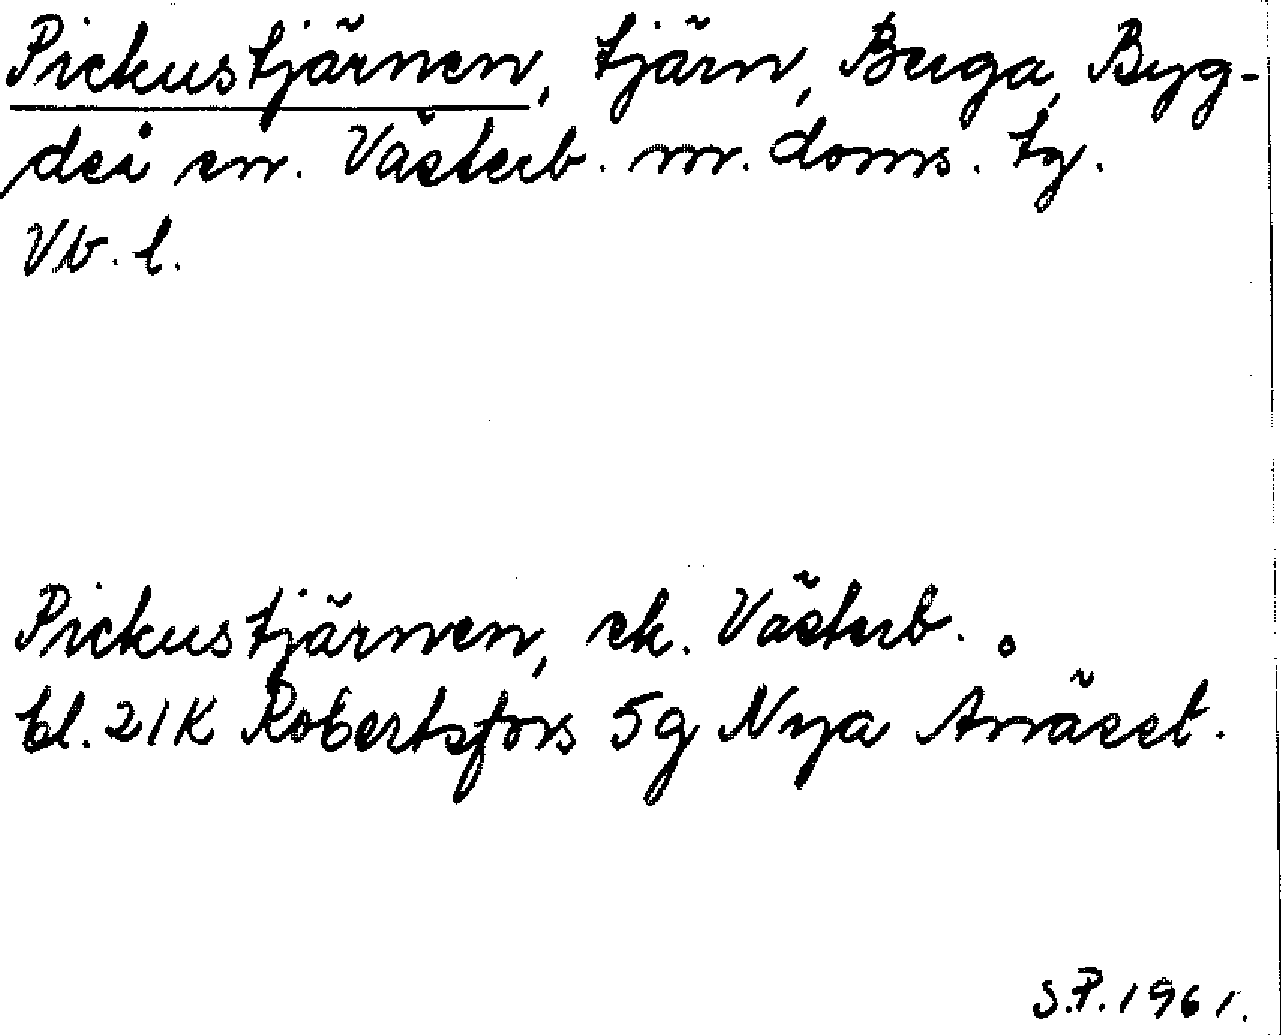 Pickustjärnen, tjärn, Berga, Byg-
deå sn. Västerb. m. doms. tg.
Vb. l.
Pickustjärnen, ek. Västerb.
bl. 21K Robertsfors 5g Nya Anäset.
S.P. 1961.